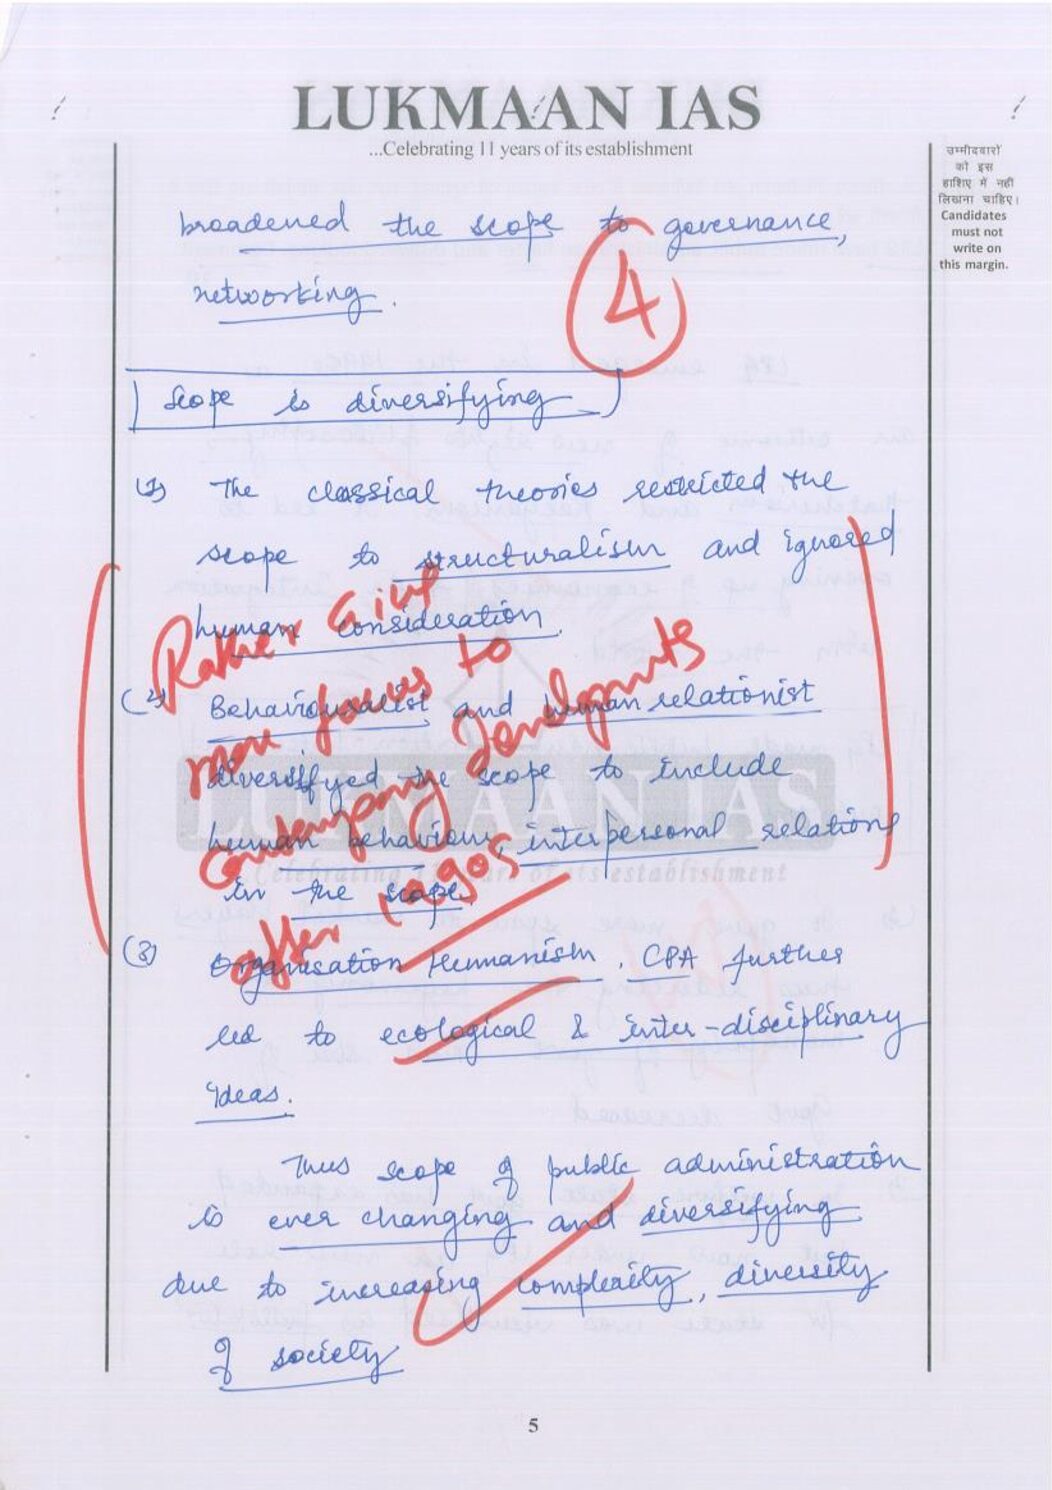 LUKMAAN IAS
...Celebrating 11 years of its establishment
उम्मीदवारों
को इस
हाशिए में नहीं
लिखना चाहिए।
Candidates
must not
write on
this margin.
broadened the scope to governance,
networking.
4
Scope is diversifying
(1) The classical theories restricted the
scope to structuralism and ignored
human consideration.
Rather Give
more focus to
Contemporary Developments
after 1990s
(2) Behaviouralist and human relationist
diversifyed the scope to include
human behaviour, interpersonal relations
in the scope.
LUKMAAN IAS
Celebrating 11 years of its establishment
(3) Organisation Humanism, CPA further
led to ecological & inter-disciplinary
ideas.
Thus scope of public administration
is ever changing and diversifying
due to increasing complexity, diversity
of society
5